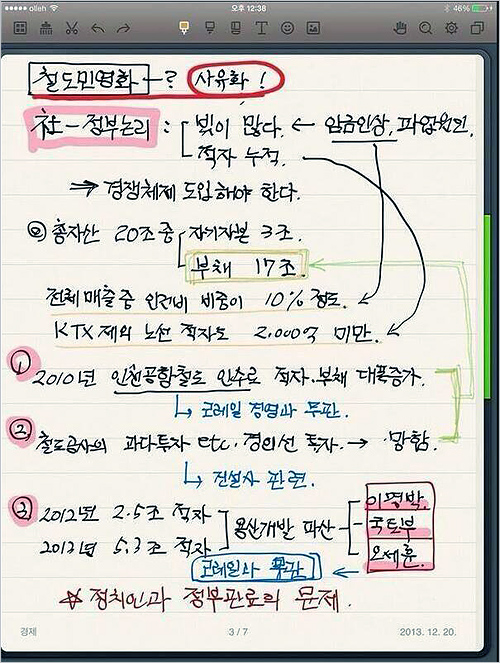 olleh 오후 12:38 46%
철도민영화 - ? 사유화!
社 - 정부논리 : 빚이 많다. ← 임금인상, 파업원인.
적자 누적.
⇒ 경쟁체제 도입해야 한다.
◎ 총자산 20조 중 자기자본 3조.
부채 17조.
전체 매출 중 인건비 비중이 10% 정도.
KTX 제외 노선 적자도 2,000억 미만.
① 2010년 인천공항철도 인수로 적자.부채 대폭증가.
↳ 코레일 경영과 무관.
② 철도공사의 과다투자 etc. 경의선 투자. → 망함.
↳ 건설사 관련.
③ 2012년 2.5조 적자
2013년 5.3조 적자
용산개발 파산
이명박.
국토부
오세훈.
코레일과 무관
☆ 정치인과 정부관료의 문제.
경제 3 / 7 2013. 12. 20.